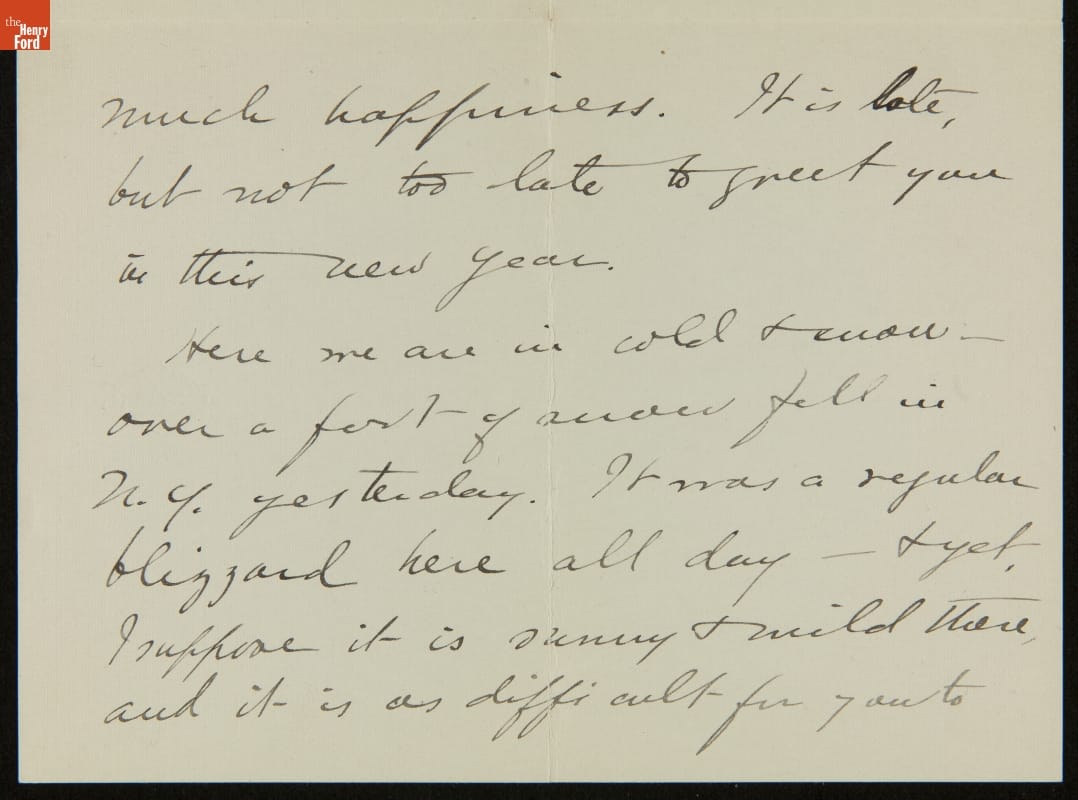 the
Henry
Ford
much happiness. It is late,
but not too late to greet you
in this new year.
Here we are in cold & snow –
over a foot of snow fell in
N.Y. yesterday. It was a regular
blizzard here all day – & yet,
I suppose it is sunny & mild there,
and it is as difficult for you to